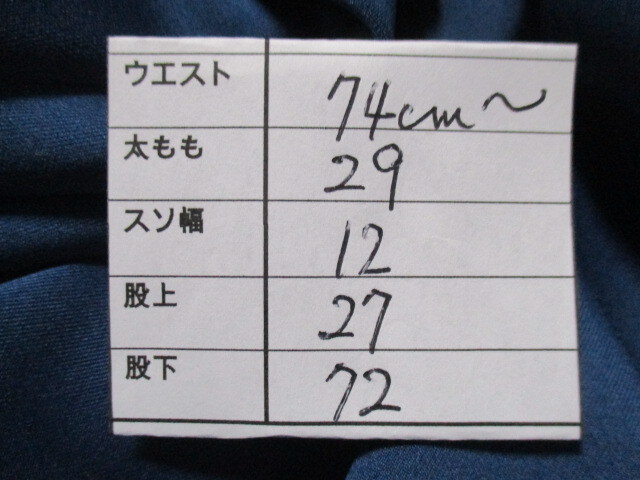 ウエスト 74cm～
太もも 29
スソ幅 12
股上 27
股下 72